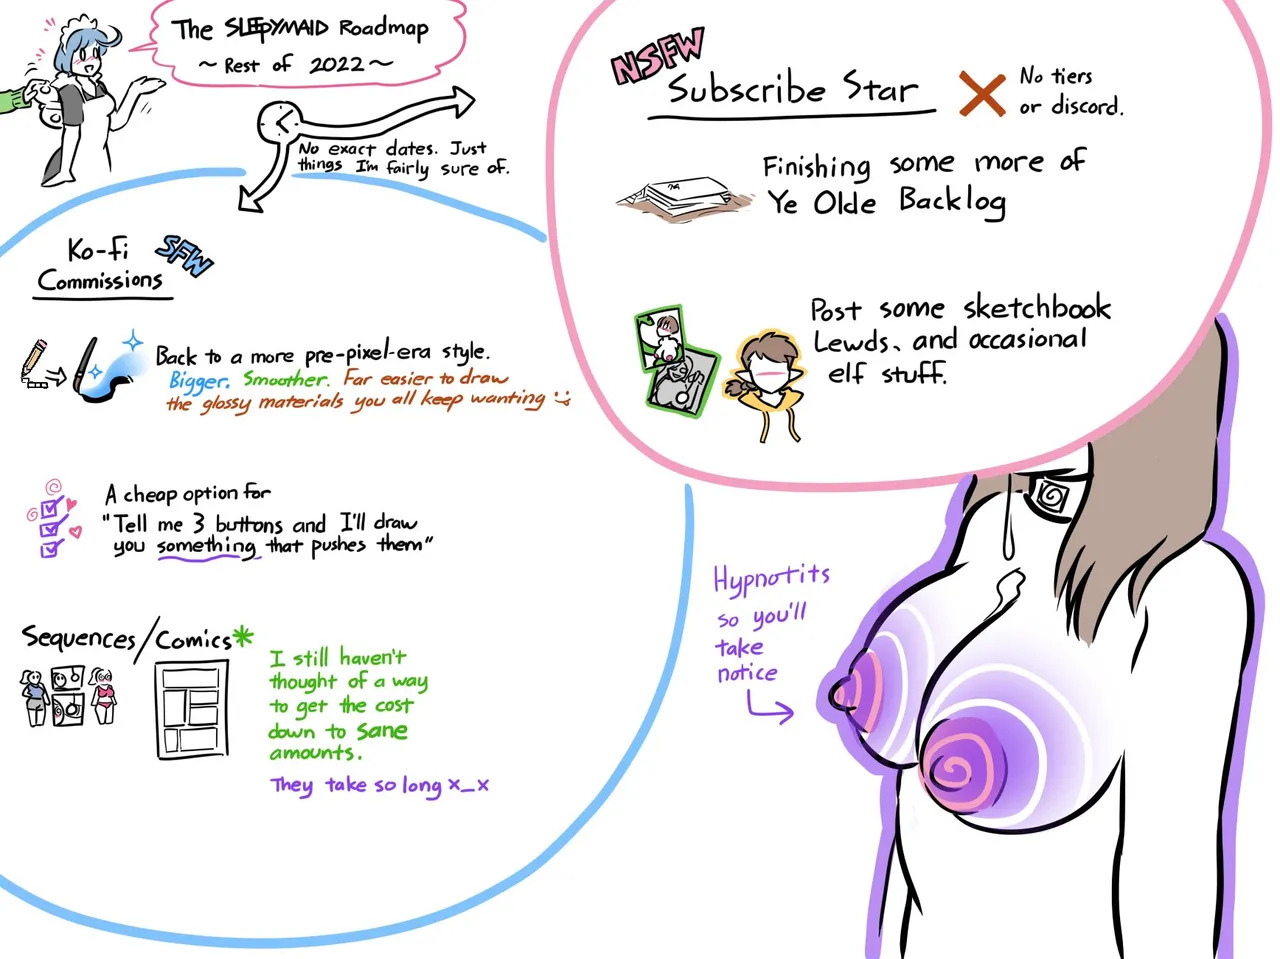 The SLEEPYMAID Roadmap
~ Rest of 2022 ~
No exact dates. Just
things I'm fairly sure of.
Ko-fi
SFW
Commissions
Back to a more pre-pixel-era style.
Bigger. Smoother. Far easier to draw
the glossy materials you all keep wanting :)
A cheap option for
"Tell me 3 buttons and I'll draw
you something that pushes them"
Sequences/Comics*
I still haven't
thought of a way
to get the cost
down to sane
amounts.
They take so long x_x
NSFW
Subscribe Star
No tiers
or discord.
Finishing some more of
Ye Olde Backlog
Post some sketchbook
Lewds, and occasional
elf stuff.
Hypnotits
so you'll
take
notice